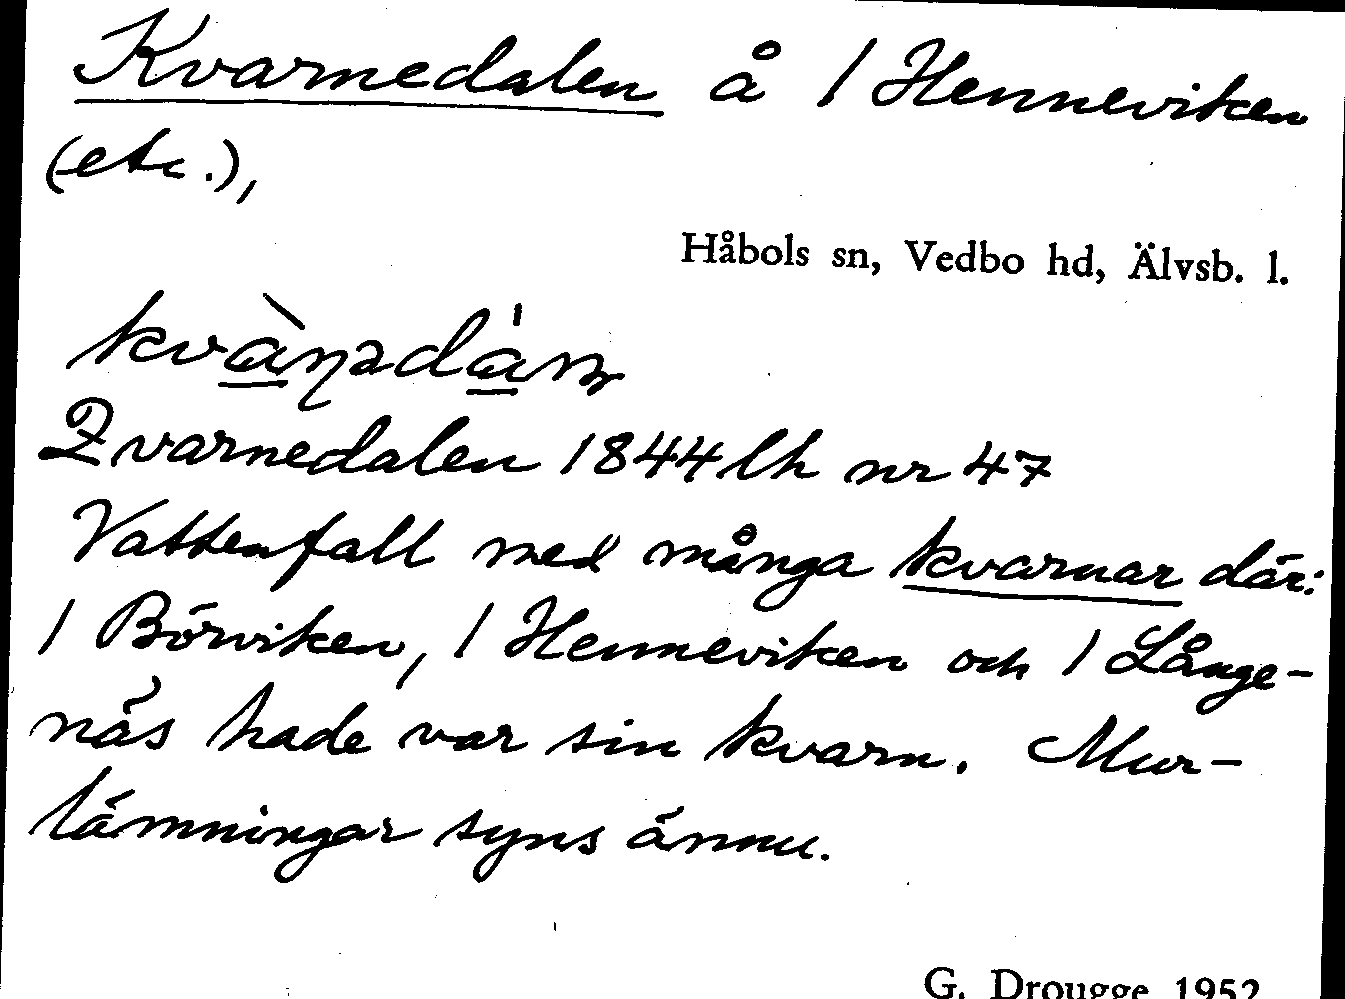 Kvarnedalen å 1 Henneviken
(etc.),
Håbols sn, Vedbo hd, Älvsb. l.
Qvarnedalen 1844 lh nr 47
Vattenfall med många kvarnar där:
1 Börviken, 1 Henneviken och 1 Långe-
näs hade var sin kvarn. Mur-
lämningar syns ännu.
G. Drougge 1952